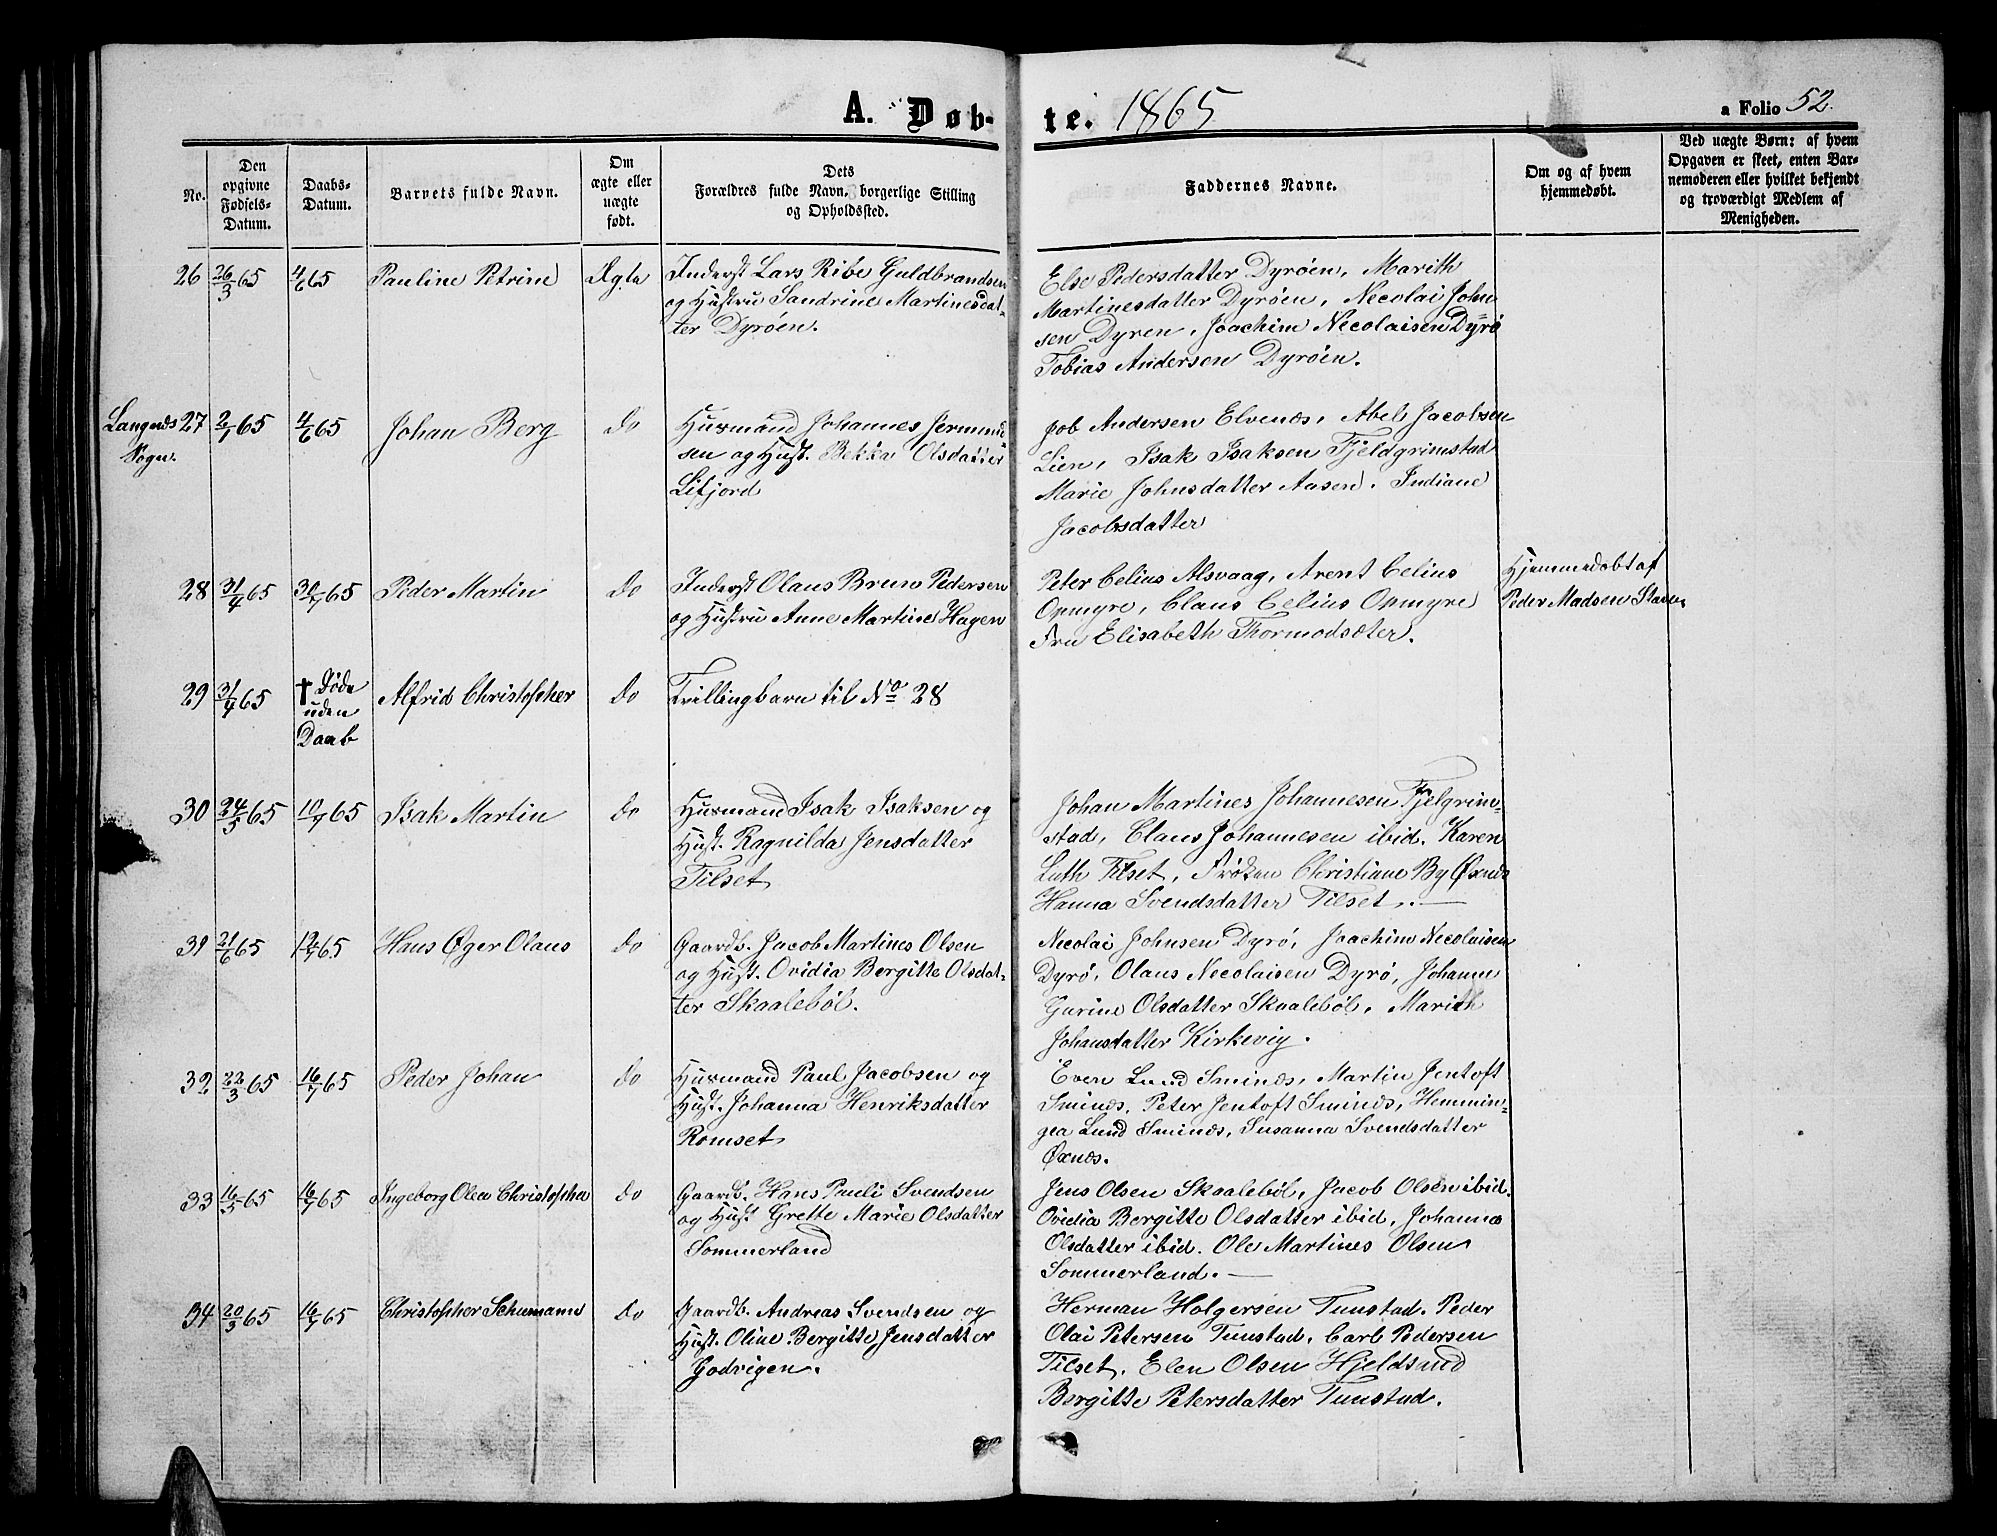 A. Døb-
te. 1865
a Folio 52.
No.
Den
opgivne
Fødsels-
Datum.
Daabs-
Datum.
Barnets fulde Navn.
Om
ægte eller
uægte
født.
Dets
Forældres fulde Navn, borgerlige Stilling
og Opholdssted.
Faddernes Navne.
Om og af hvem
hjemmedøbt.
Ved uægte Børn: af hvem
Opgaven er skeet, enten Bar-
nemoderen eller hvilket bekjendt
og troværdigt Medlem af
Menigheden.
26 26/3 65 4/6 65 Pauline Petrine Ægte
Inderst Lars Ribe Guldbrandsen
og Hustru Sandrine Martinesdat-
ter Dyrøen.
Else Pedersdatter Dyrøen, Marith
Martinesdatter Dyrøen, Necolai John-
sen Dyren, Joachim Necolaisen Dyrø
Tobias Andersen Dyrøen.
Langnes Sogn.
27 2/1 65 4/6 65 Johan Berg do
Husmand Johannes Jermund-
sen og Hust. Bekka Olsdatter
Lifjord
Job Andersen Elvenæs, Abel Jacobsen
Lien, Isak Isaksen Fjeldgrimstad
Marie Johnsdatter Aasen, Indiane
Jacobsdatter
28 31/4 65 30/7 65 Peder Martin do
Inderst Olaus Brun Pedersen
og Hustru Anne Martine Hagen
Peter Celius Alsvaag, Arent Celius
Opmyre, Claus Celius Opmyre
Fru Elisabeth Thormodsæter.
Hjemmedøbt af
Peder Madsen
29 31/4 65 † Døde
uden
Daab
Alfrid Christopher do
Tvillingbarn til No 28
30 24/5 65 10/7 65 Isak Martin do
Husmand Isak Isaksen og
Hust. Ragnilda Jensdatter
Tilset
Johan Martines Johannesen Fjelgrim-
stad, Claus Johannesen ibid. Karen
Luth Tilset, Frøken Christiane By Øxnes
Hanna Svendsdatter Tilset.
31 21/6 65 12/7 65 Hans Øger Olaus do
Gaardb. Jacob Martines Olsen
og Hust. Ovidia Bergitte Olsdat-
ter Skaalebøl.
Necolai Johnsen Dyrø, Joachim Necolaisen
Dyrø, Olaus Necolaisen Dyrø, Johanne
Gurine Olsdatter Skaalebøl, Marith
Johansdatter Kirkevig.
32 22/3 65 16/7 65 Peder Johan do
Husmand Paul Jacobsen og
Hust. Johanna Henriksdatter
Romset
Even Lund Sminæs, Martin Jentoft
Sminæs, Peter Jentoft Sminæs, Hemmin-
gea Lund Sminæs, Susanna Svendsdatter
Øxnæs.
33 16/5 65 16/7 65 Ingeborg Olea Christopha do
Gaardb. Hans Pauli Svendsen
og Hust Grette Marie Olsdatter
Sommerland
Jens Olsen Skaalebøl, Jacob Olsen ibid.
Ovidia Bergitte Olsdatter ibid, Johanna
Olsdatter ibid. Ole Martines Olsen
Sommerland.
34 20/3 65 16/7 65 Christopher Schumann do
Gaardb. Andreas Svendsen og
Hust. Oline Bergitte Jensdatter
Godvigen.
Herman Holgersen Tunstad. Peder
Olai Petersen Tunstad, Carl Pedersen
Tilset, Elen Olsen Hjeldsand
Bergitte Petersdatter Tunstad.